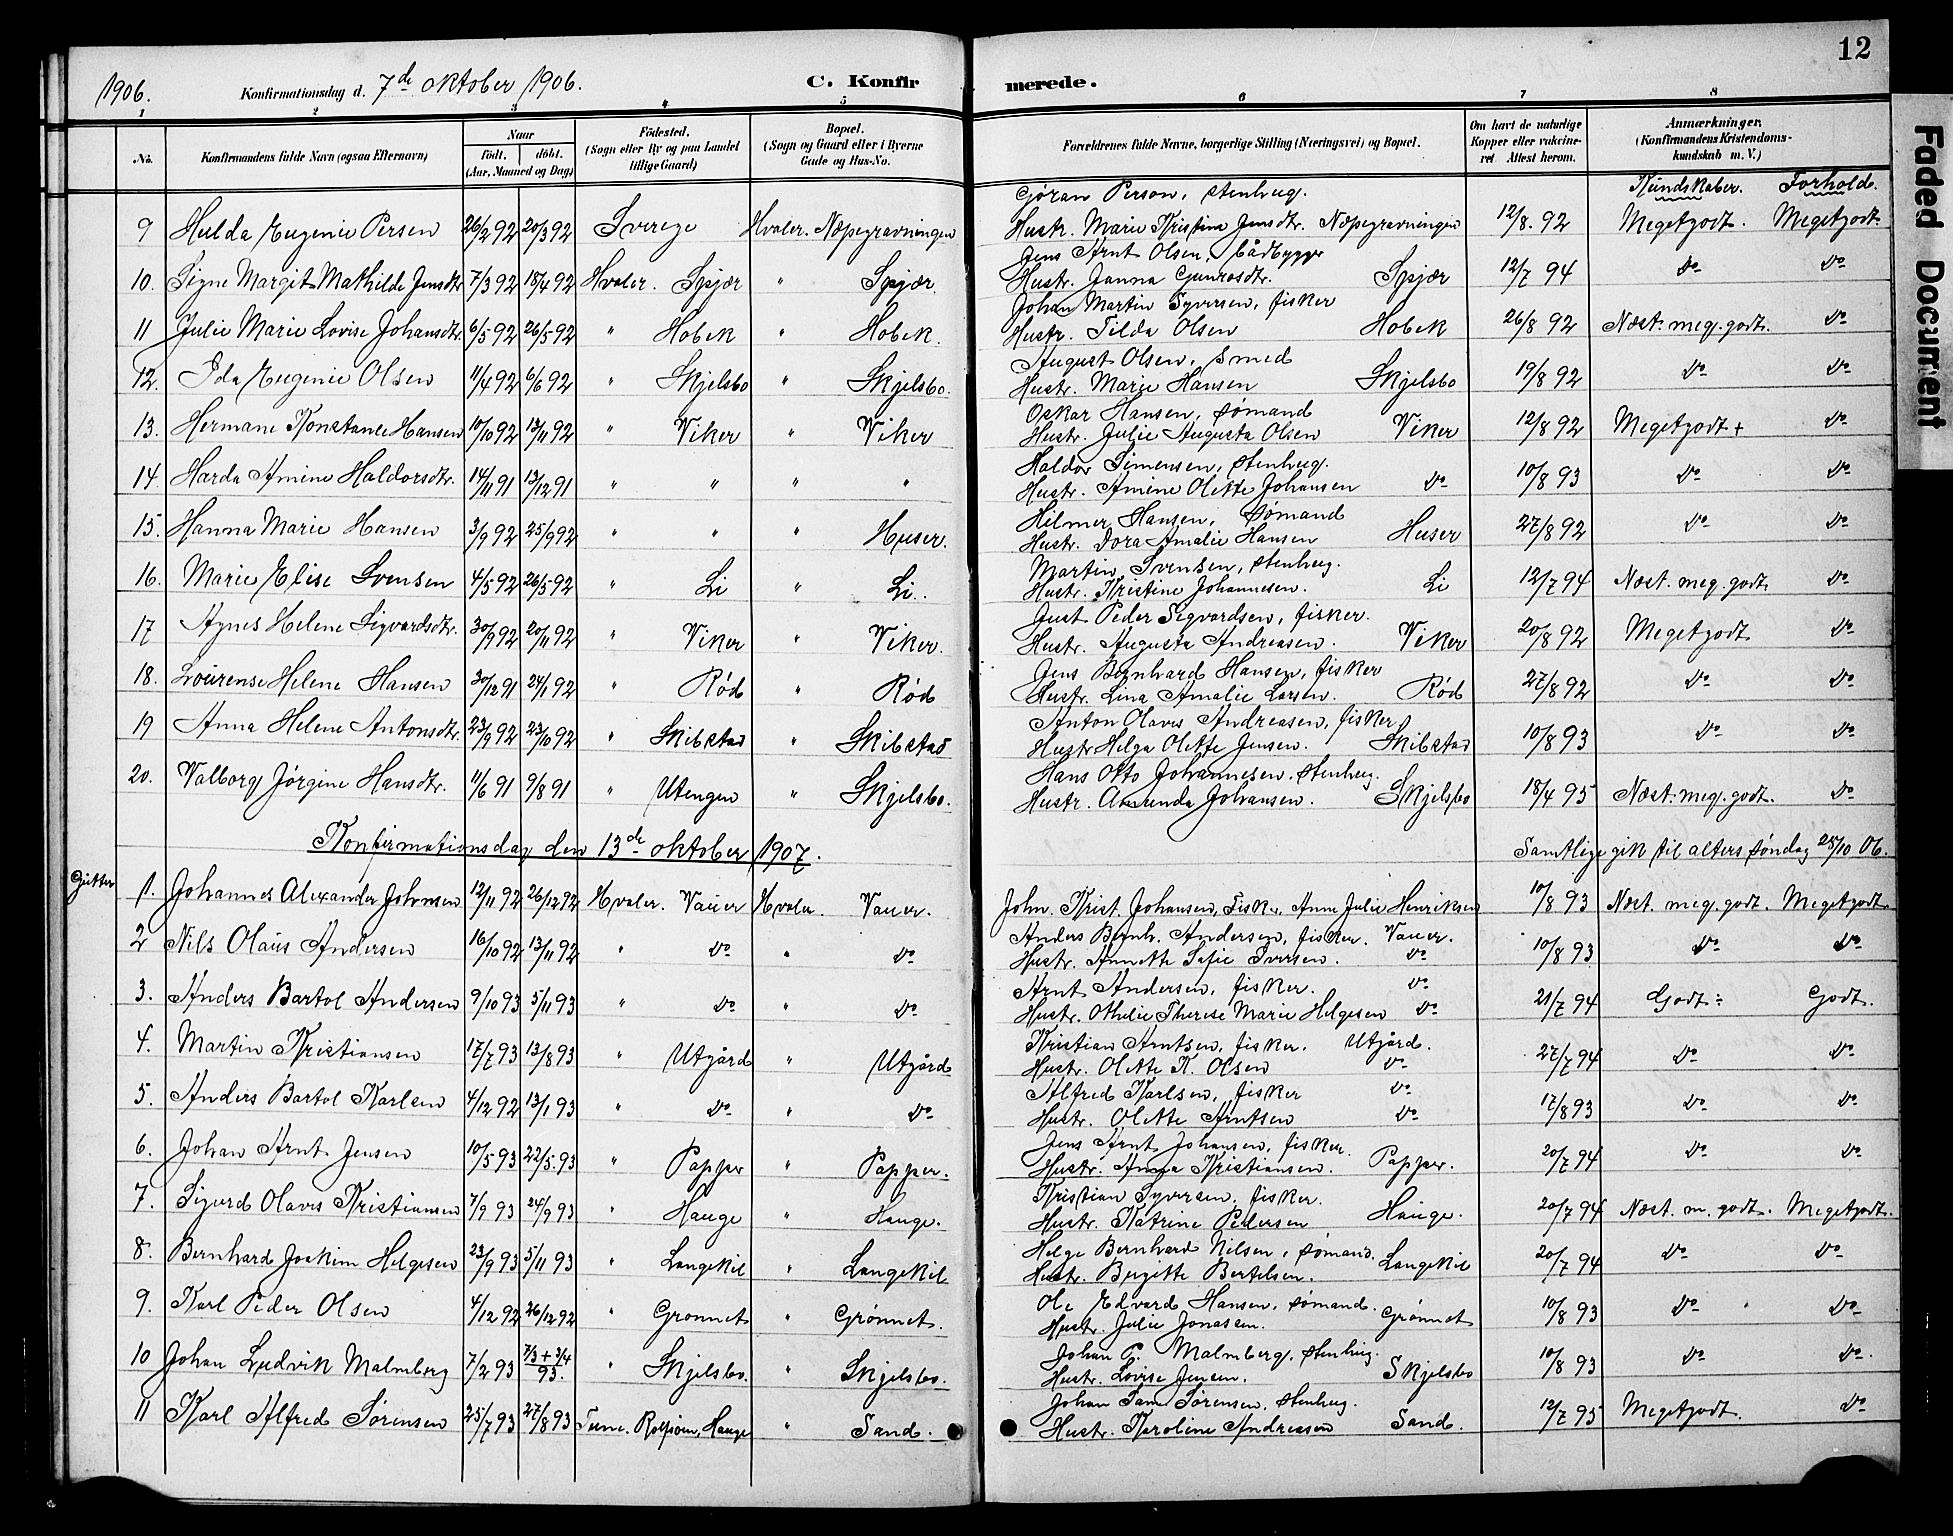 12
1906.
Konfirmationsdag d. 7de oktober 1906.
C. Konfirmerede.
1 2 3 4 5 6 7 8
No.
Konfirmandens fulde Navn (ogsaa Efternavn)
Naar
födt. döbt.
(Aar, Maaned og Dag)
Födested.
(Sogn eller By og paa Landet tillige Gaard)
Bopæl.
(Sogn og Gaard eller i Byerne Gade og Hus-No.
Forældrenes fulde Navne, borgerlige Stilling (Næringsvei) og Bopæl.
Om havt de naturlige Kopper eller vakcineret. Attest herom.
Anmærkninger.
(Konfirmandens Kristendomskundskab m. V.)
Kundskaber. Forhold.
Göran Person, stenhug.
9 Hulda Eugenie Persen 26/2 92 20/3 92 Sverige Hvaler. Næpegravningen Hustr. Marie Kristine Jensdtr. Næpegravningen 12/8. 92 Megetgodt. Megetgodt.
Jens Arnt Olsen, bådbygger
10. Signe Margit Mathilde Jensdtr 7/3 92 18/4 92 Hvaler. Spjær " Spjær. Hustr. Janna Gunrosdtr. Spjær 12/7 94 do do
Johan Martin Syversen, fisker
11 Julie Marie Lovise Johansdtr. 6/5 92 26/5 92 " Hobek " Hobek. Hustr. Tilda Olsen Hobek 26/8 92 Næst. meg. godt. do
August Olsen, smed
12. Ida Eugenie Olsen 11/4 92 6/6 92 " Skjelsbo " Skjelsbo. Hustr. Marie Hansen Skjelsbo 19/8 92 do do
Oskar Hansen, sømand
13. Hermane Konstance Hansen 10/10 92 13/11 92 " Viker " Viker Hustr. Julie Augusta Olsen Viker 12/8 92 Megetgodt + do
Haldor Simensen, stenhug.
14. Harda Amine Haldorsdtr. 14/11 91 13/12 91 " " " " Hustr. Amine Olette Johansen do 10/8 93 do do
Hilmer Hansen, sømand
15. Hanna Marie Hansen 3/9 92 25/9 92 " " " Huser. Hustr. Dora Amalie Hansen Huser 27/8 92 do do
Martin Svensen, stenhug.
16. Marie Elise Svensen 4/5 92 26/5 92 " Li " Li. Hustr. Kristine Johannesen. Li 12/7 94 Næst. meg. godt do
Just Peder Sigvardsen, fisker.
17 Agnes Helene Sigvardsdtr. 30/9 92 20/11 92 " Viker " Viker. Hustr. Augusta Andreasen. Viker 20/8 92 Megetgodt do
Jens Bernhard Hansen, fisker
18. Lourense Helene Hansen 30/12 91 24/1 92 " Rød " Rød Hustr. Lina Amalie Larsen. Rød 27/8 92 do do
Anton Olaves Andreasen, fisker
19 Anna Helene Antonsdtr. 23/9 92 23/10 92 " Skibstad " Skibstad Hustr Helga Olette Jensen. Skibstad 10/8 93 do do
Hans Otto Johannesen, stenhug.
20. Valborg Jørgine Hansdtr. 11/6 91 9/8 91 " Utengen " Skjelsbo. Hustr. Amunda Johansen. Skjelsbo 18/4 95 Næst. meg. godt. do
Konfirmationsdag den 13de oktober 1907.
Samtlige gik til alters søndag 28/10 06.
Gutter
1. Johannes Alexander Johnsen 12/11 92 26/12 92 Hvaler. Vauer Hvaler. Vauer. John. Krist. Johansen, Fisker, Anne Julie Henriksen 10/8 93 Næst. meg. godt. Megetgodt.
Anders Bernh. Andersen, fisker. Vauer.
2 Nils Olaus Andersen 16/10 92 13/11 92 " do " do Hustr. Annette Sofie Iversen. do 10/8 93 do do
Arnt Andersen, fisker. do
3. Anders Bartol Andersen 9/10 93 5/11 93 " do " do Hustr. Othelie Therese Marie Helgesen do 21/7 94 Godt ÷ Godt.
Kristian Arntsen, fisker. Utgård.
4. Martin Kristiansen 17/7 93 13/8 93 " Utgård " Utgård Hustr. Olette K. Olsen do 27/7 94 do do
Alfred Karlsen, fisker do
5. Anders Bartol Karlsen 4/12 92 13/1 93 " do " do Hustr. Olette Arntsen do 17/8 93 do do
Jens Arnt Johansen, fisker.
6. Johan Arnt Jensen 10/5 93 22/5 93 " Papper " Papper. Hustr. Anna Kristiansen. Papper. 20/7 94 do do
Kristian Syversen, fisker.
7. Sigurd Olaves Kristiansen 7/9 93 24/9 93 " Hauge " Hauge. Hustr. Katrine Pedersen Hauge. 20/7 94 Næst. m. godt. Megetgodt.
Helge Bernhard Nilsen, sømand.
8. Bernhard Joakim Helgesen 23/9 93 5/11 93 " Langekil " Langekil Hustr. Birgitte Bertelsen. Langekil 20/7 94 do do
Ole Edvard Hansen, sømand.
9. Karl Peder Olsen 4/12 92 26/12 92 " Grønnet " Grønnet. Hustr. Julie Jonasen. Grønnet 10/8 93 do do
Johan P. Malmberg, stenhug.
10 Johan Ludvik Malmberg 7/2 93 7/3 + 3/4 93. " Skjelsbo. " Skjelsbo. Hustr. Lovise Jensen. Skjelsbo 10/8 93 do do
Johan Sam. Sørensen, stenhug.
11 Karl Alfred Sørensen 25/7 93 27/8 93 Tune. Rolfsøen, Hauge " Sand. Hustr. Karoline Andreasen Sand. 12/7 95 Megetgodt. do
Faded Document